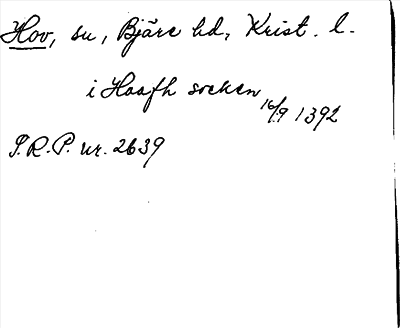 Hov, sn, Bjäre hd, Krist. l.
i Haafh socken 16/9 1392
P.R.P. nr. 2639